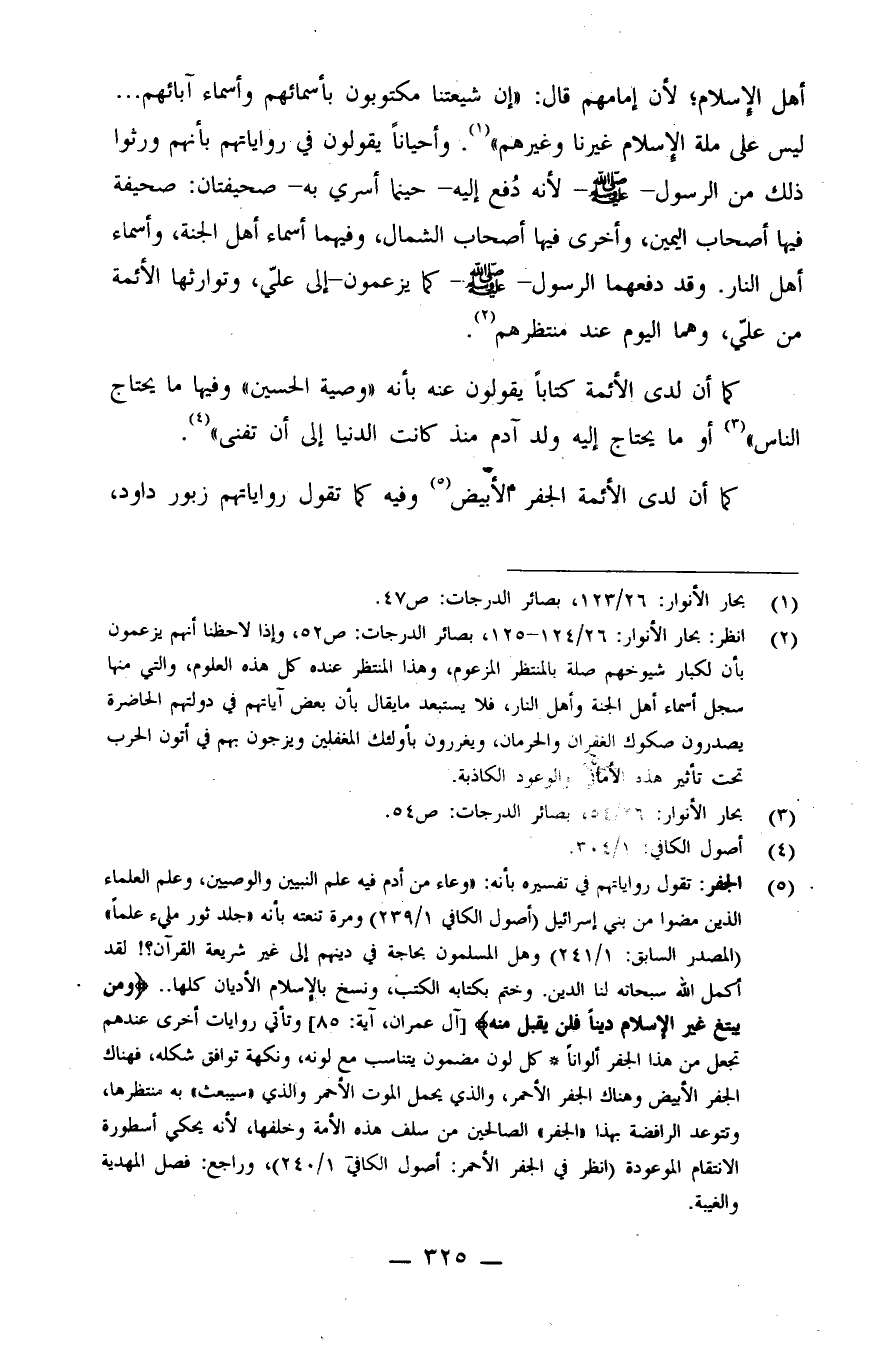 أهل الإسلام؛ لأن إمامهم قال: «إن شيعتنا مكتوبون بأسمائهم وأسماء آبائهم...
ليس على ملة الإسلام غيرنا وغيرهم»(١). وأحياناً يقولون في رواياتهم بأنهم ورثوا
ذلك من الرسول– ﷺ – لأنه دُفع إليه– حينما أسري به– صحيفتان: صحيفة
فيها أصحاب اليمين، وأخرى فيها أصحاب الشمال، وفيهما أسماء أهل الجنة، وأسماء
أهل النار. وقد دفعهما الرسول– ﷺ – كما يزعمون–إلى عليّ، وتوارثها الأئمة
من عليّ، وهما اليوم عند منتظرهم(٢).
كما أن لدى الأئمة كتاباً يقولون عنه بأنه «وصية الحسين» وفيها ما يحتاج
الناس»(٣) أو ما يحتاج إليه ولد آدم منذ كانت الدنيا إلى أن تفنى»(٤).
كما أن لدى الأئمة الجفر الأبيض(٥) وفيه كما تقول رواياتهم زبور داود،
(١) بحار الأنوار: ١٢٣/٢٦، بصائر الدرجات: ص٤٧.
(٢) انظر: بحار الأنوار: ١٢٤/٢٦–١٢٥، بصائر الدرجات: ص٥٢، وإذا لاحظنا أنهم يزعمون
بأن لكبار شيوخهم صلة بالمنتظر المزعوم، وهذا المنتظر عنده كل هذه العلوم، والتي منها
سجل أسماء أهل الجنة وأهل النار، فلا يستبعد مايقال بأن بعض آياتهم في دولتهم الحاضرة
يصدرون صكوك الغفران والحرمان، ويغررون بأولئك المغفلين ويزجون بهم في أتون الحرب
تحت تأثير هذه الأماني والوعود الكاذبة.
(٣) بحار الأنوار: ٥٤/٢٦، بصائر الدرجات: ص٥٤.
(٤) أصول الكافي: ٣٠٤/١.
(٥) الجفر: تقول رواياتهم في تفسيره بأنه: «وعاء من أدم فيه علم النبيين والوصيين، وعلم العلماء
الذين مضوا من بني إسرائيل (أصول الكافي ٢٣٩/١) ومرة تنعته بأنه «جلد ثور مليء علماً»
(المصدر السابق: ٢٤١/١) وهل المسلمون بحاجة في دينهم إلى غير شريعة القرآن؟! لقد
أكمل الله سبحانه لنا الدين. وختم بكتابه الكتب، ونسخ بالإسلام الأديان كلها.. ﴿ومن
يبتغ غير الإسلام ديناً فلن يقبل منه﴾ [آل عمران، آية: ٨٥] وتأتي روايات أخرى عندهم
تجعل من هذا الجفر ألواناً * كل لون مضمون يتناسب مع لونه، ونكهة توافق شكله، فهناك
الجفر الأبيض وهناك الجفر الأحمر، والذي يحمل الموت الأحمر والذي «سيبعث» به منتظرها،
وتتوعد الرافضة بهذا «الجفر» الصالحين من سلف هذه الأمة وخلفها، لأنه يحكي أسطورة
الانتقام الموعودة (انظر في الجفر الأحمر: أصول الكافي ٢٤٠/١)، وراجع: فصل المهدية
والغيبة.
— ٣٢٥ —